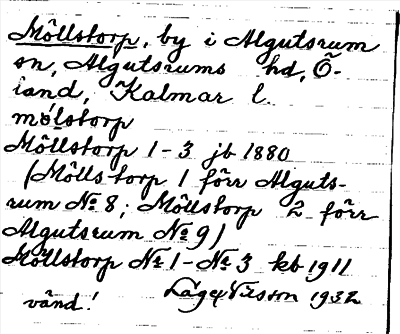 Möllstorp, by i Algutsrum
sn, Algutsrums hd, Ö-
land, Kalmar l.
mölstorp
Möllstorp 1-3 jb 1880
(Möllstorp 1 förr Alguts-
rum № 8; Möllstorp 2 förr
Algutsrum № 9)
Möllstorp № 1 - № 3 kb 1911
vänd! Låge Nilsson 1932